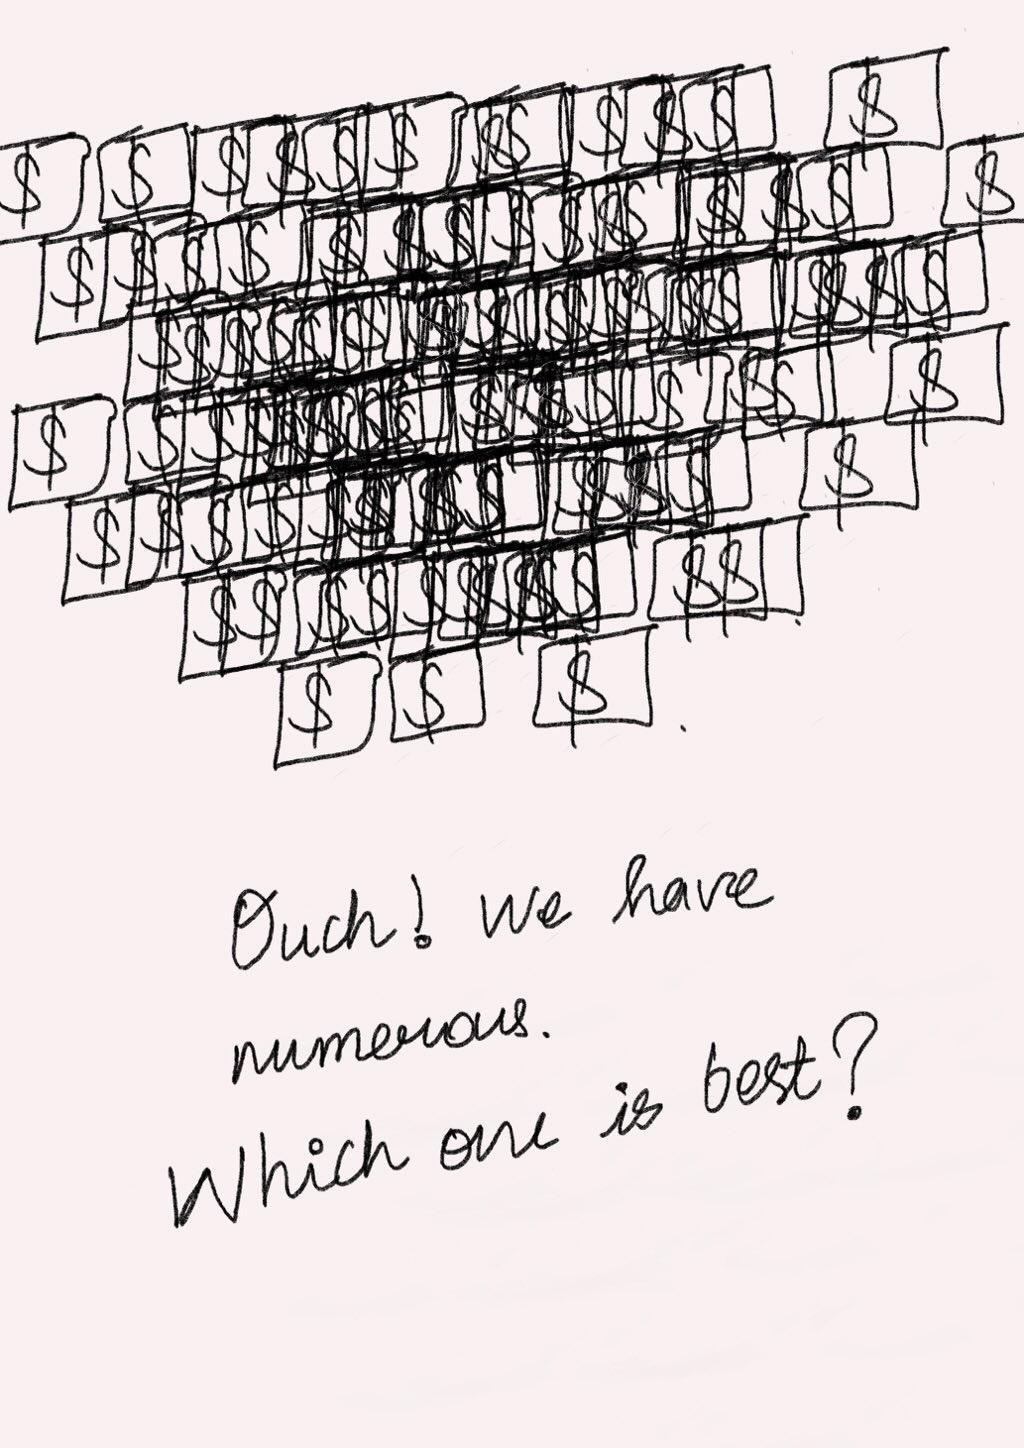 Ouch! We have
numerous.
Which one is best?